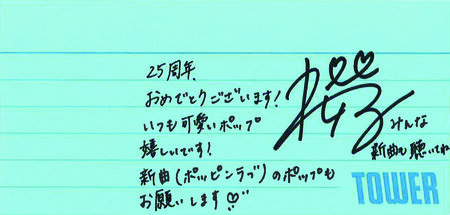 25周年
おめでとうございます!
いつも可愛いポップ
嬉しいです!
新曲(ポッピンラブ)のポップも
お願いします♡
桜子
みんな
新曲も聴いてね
TOWER